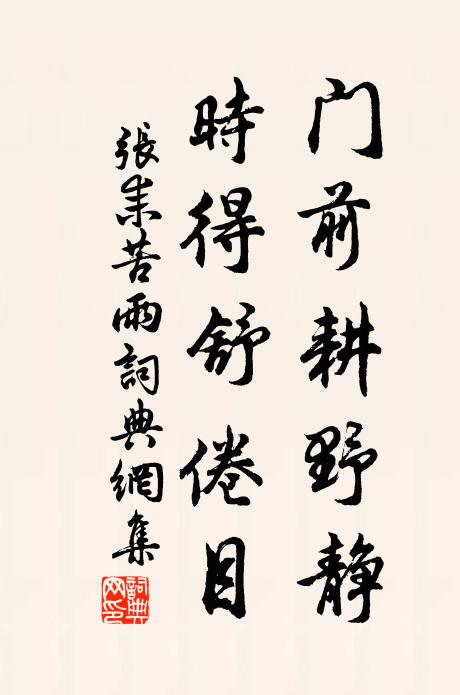 门前耕野静
時得舒倦目
張耒苦雨詞典網集
詞典网印